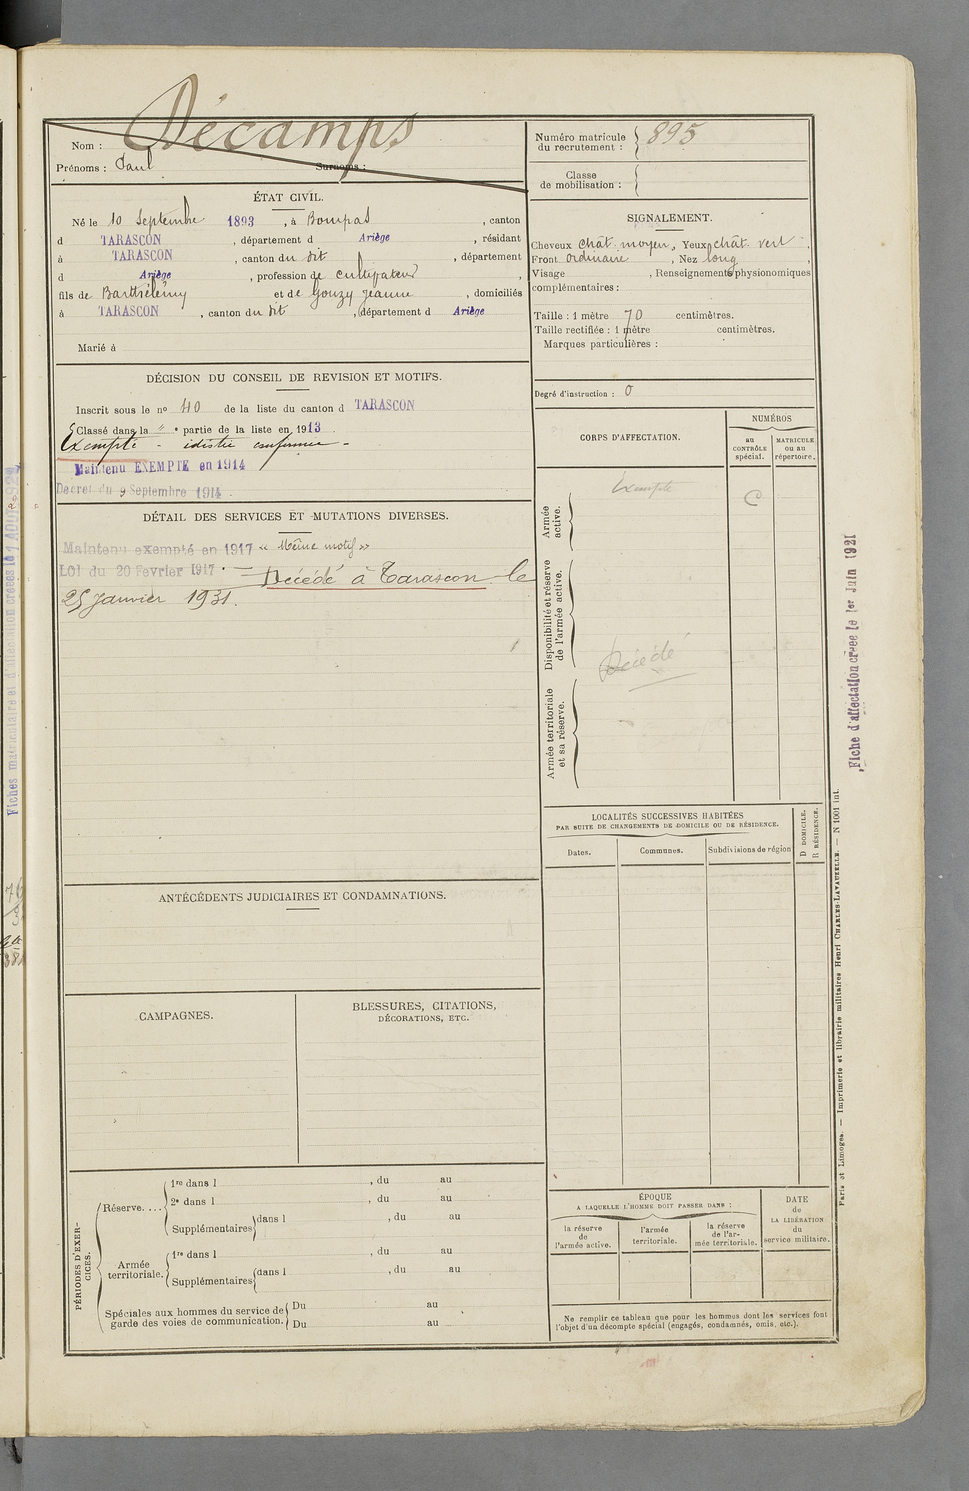 Nom : Décamps
Prénoms : Paul Surnoms :
Numéro matricule du recrutement : 895
Classe de mobilisation :
ÉTAT CIVIL.
Né le 10 Septembre 1893, à Bompas, canton
d TARASCON, département d Ariège, résidant
à TARASCON, canton du dit, département
d Ariège, profession de cultivateur,
fils de Barthélemy et de Gouzy Jeanne, domiciliés
à TARASCON, canton du dit, département d Ariège
Marié à
SIGNALEMENT.
Cheveux chât. moyen, Yeux chât. vert,
Front ordinaire, Nez long,
Visage , Renseignements physionomiques
complémentaires :
Taille : 1 mètre 70 centimètres.
Taille rectifiée : 1 mètre centimètres.
Marques particulières :
Degré d'instruction : 0
DÉCISION DU CONSEIL DE REVISION ET MOTIFS.
Inscrit sous le nº 40 de la liste du canton d TARASCON
Classé dans la " e partie de la liste en 1913
Exempté -
Maintenu EXEMPTÉ en 1914
Décret du 9 Septembre 1914
DÉTAIL DES SERVICES ET MUTATIONS DIVERSES.
Maintenu exempté en 1917 « Même motif »
LOI du 20 Fevrier 1917. — Décédé à Tarascon le
25 Janvier 1931.
CORPS D'AFFECTATION.
NUMÉROS
au CONTRÔLE spécial.
MATRICULE ou au répertoire.
Armée active.
Exempté
C
Disponibilité et réserve de l'armée active.
Décédé
Armée territoriale et sa réserve.
LOCALITÉS SUCCESSIVES HABITÉES
PAR SUITE DE CHANGEMENTS DE DOMICILE OU DE RÉSIDENCE.
Dates.
Communes.
Subdivisions de région
D DOMICILE.
R RÉSIDENCE.
ANTÉCÉDENTS JUDICIAIRES ET CONDAMNATIONS.
CAMPAGNES.
BLESSURES, CITATIONS,
DÉCORATIONS, ETC.
PÉRIODES D'EXERCICES.
Réserve....
1re dans l , du au
2e dans l , du au
Supplémentaires dans l , du au
Armée territoriale.
1re dans l , du au
Supplémentaires dans l , du au
Spéciales aux hommes du service de garde des voies de communication.
Du au
Du au
ÉPOQUE
A LAQUELLE L'HOMME DOIT PASSER DANS :
la réserve de l'armée active.
l'armée territoriale.
la réserve de l'armée territoriale.
DATE de LA LIBÉRATION du service militaire.
Ne remplir ce tableau que pour les hommes dont les services font
l'objet d'un décompte spécial (engagés, condamnés, omis, etc.).
Fiche d'affectation créée le 1er Juin 1921
Paris et Limoges. — Imprimerie et librairie militaires Henri CHARLES-LAVAUZELLE. — N 1001 int.